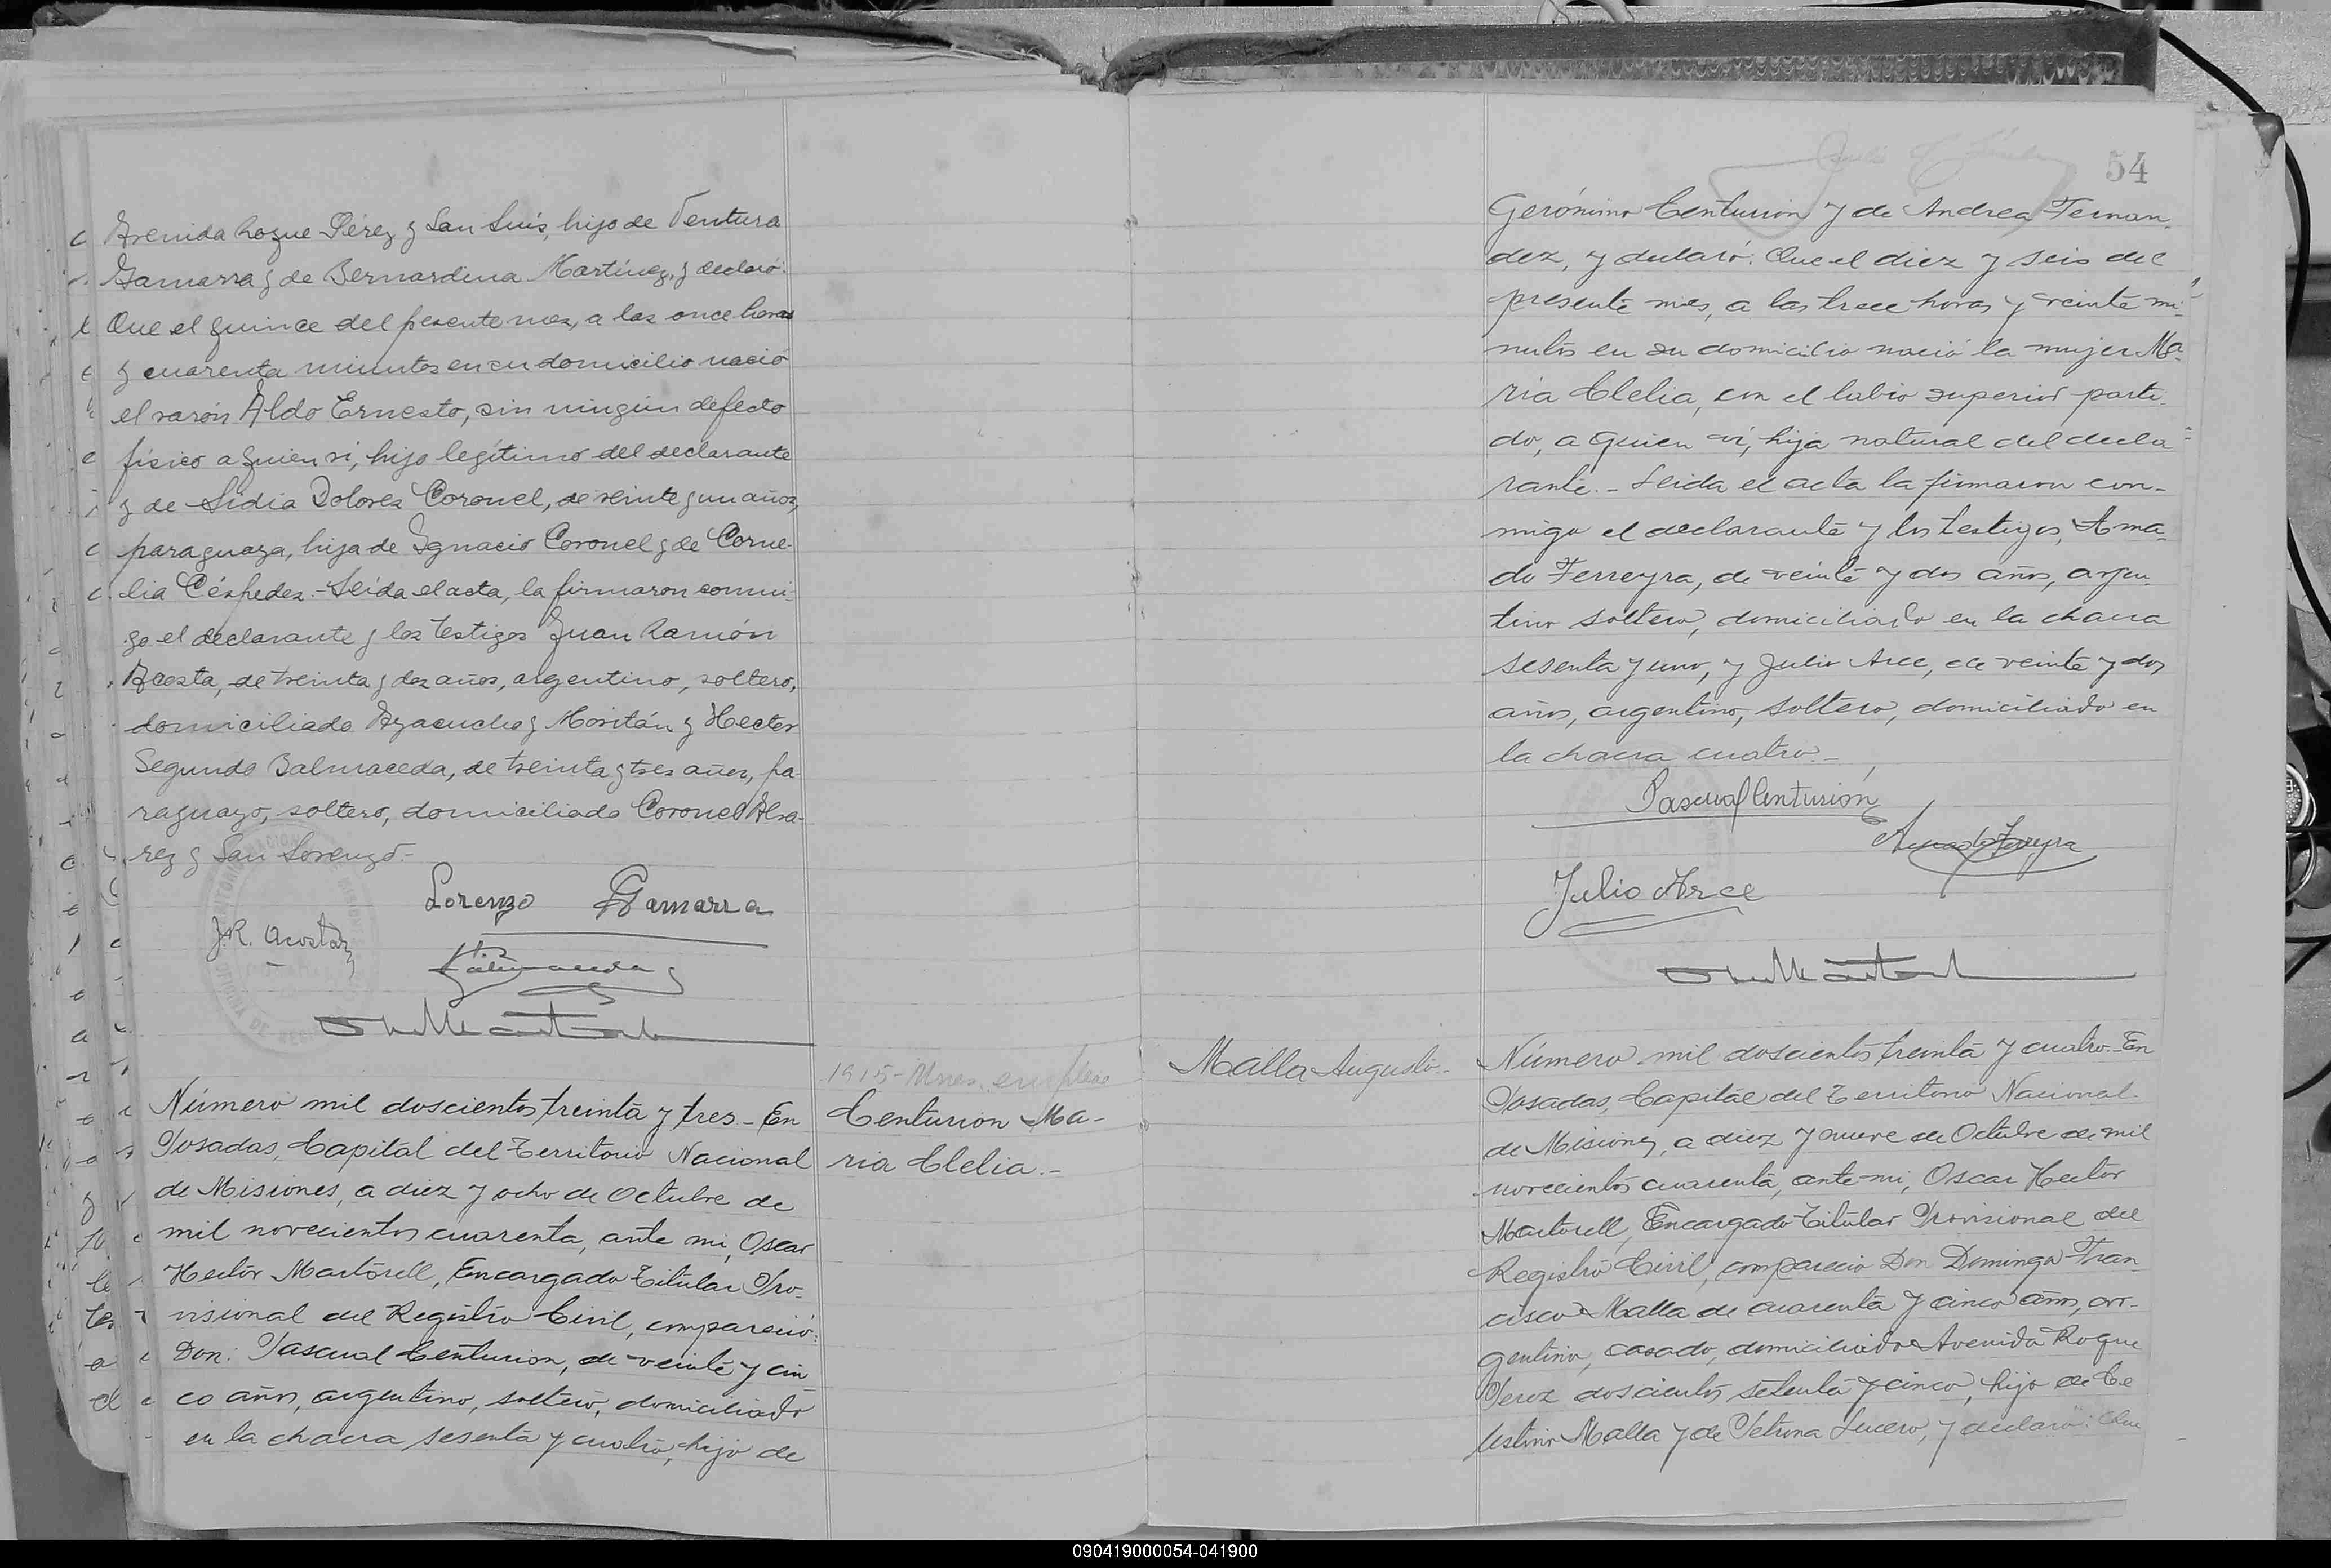 Avenida Roque Pérez y San Luis, hijo de Ventura
Gamarra y de Bernardina Martínez, y declaró:
Que el quince del presente mes, a las once horas
y cuarenta minutos en su domicilio nació
el varón Aldo Ernesto, sin ningún defecto
físico a quien vi, hijo legítimo del declarante
y de Lidia Dolores Coronel, de veinte y un años,
paraguaya, hija de Ignacio Coronel y de Corne-
lia Céspedes.- Leída el acta, la firmaron conmi-
go el declarante y los testigos Juan Ramón
Acosta, de treinta y dos años, argentino, soltero,
domiciliado Ayacucho y Moritán y Hector
Segundo Balmaceda, de treinta y tres años, pa-
raguayo, soltero, domiciliado Coronel Alva-
rez y San Lorenzo.-
Lorenzo Gamarra
J.R. Acosta
Número mil doscientos treinta y tres.- En
Posadas, Capital del Territorio Nacional
de Misiones, a diez y ocho de Octubre de
mil novecientos cuarenta, ante mi, Oscar
Hector Martorell, Encargado Titular Pro-
visional del Registro Civil, compareció:
Don: Pascual Centurion, de veinte y cin
co años, argentino, soltero, domiciliado
en la chacra sesenta y cuatro, hijo de
1915-
Centurion Ma-
ria Clelia.-
54
Gerónimo Centurion y de Andrea Fernan-
dez, y declaró: Que el diez y seis del
presente mes, a las trece horas y veinte mi-
nutos en su domicilio nació la mujer Ma-
ria Clelia, con el labio superior parti-
do, a quien vi, hija natural del decla-
rante.- Leida el acta la firmaron con-
migo el declarante y los testigos, Ama-
do Ferreyra, de veinte y dos años, argen-
tino soltero, domiciliado en la chacra
sesenta y uno, y Julio Arce, de veinte y dos
años, argentino, soltero, domiciliado en
la chacra cuatro.-
Pascual Centurión
Amado Ferreyra
Julio Arce
Malla Augusto.-
Número mil doscientos treinta y cuatro.- En
Posadas, Capital del Territorio Nacional
de Misiones, a diez y nueve de Octubre de mil
novecientos cuarenta, ante mi, Oscar Hector
Martorell, Encargado Titular Provisional del
Registro Civil, compareció Don Domingo Fran-
cisco Malla de cuarenta y cinco años, ar-
gentino, casado, domiciliado Avenida Roque
Perez doscientos setenta y cinco, hijo de Ce
lestino Malla y de Petrona Lucero, y declaró: Que
090419000054-041900